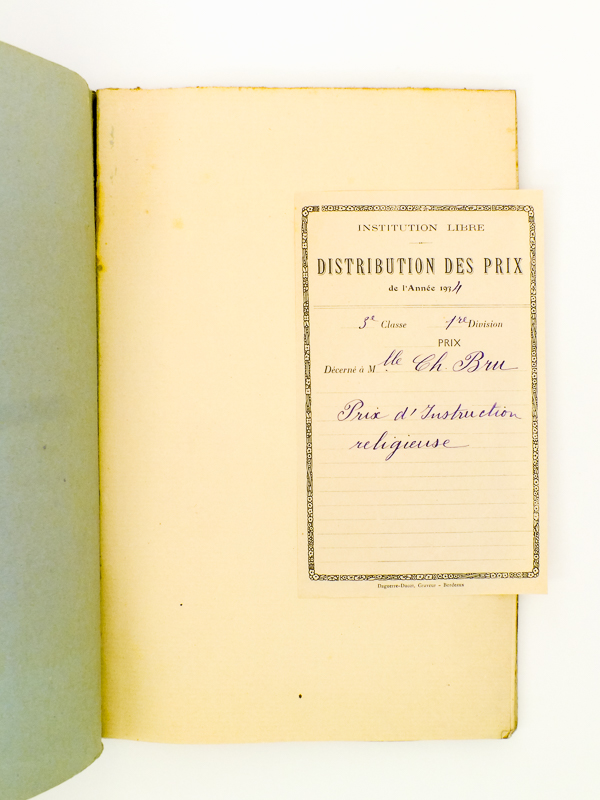 INSTITUTION LIBRE
DISTRIBUTION DES PRIX
de l'Année 1934
3e Classe 1re Division
PRIX
Décerné à Mlle Ch. Bru
Prix d'Instruction
religieuse
Graveur - Bordeaux